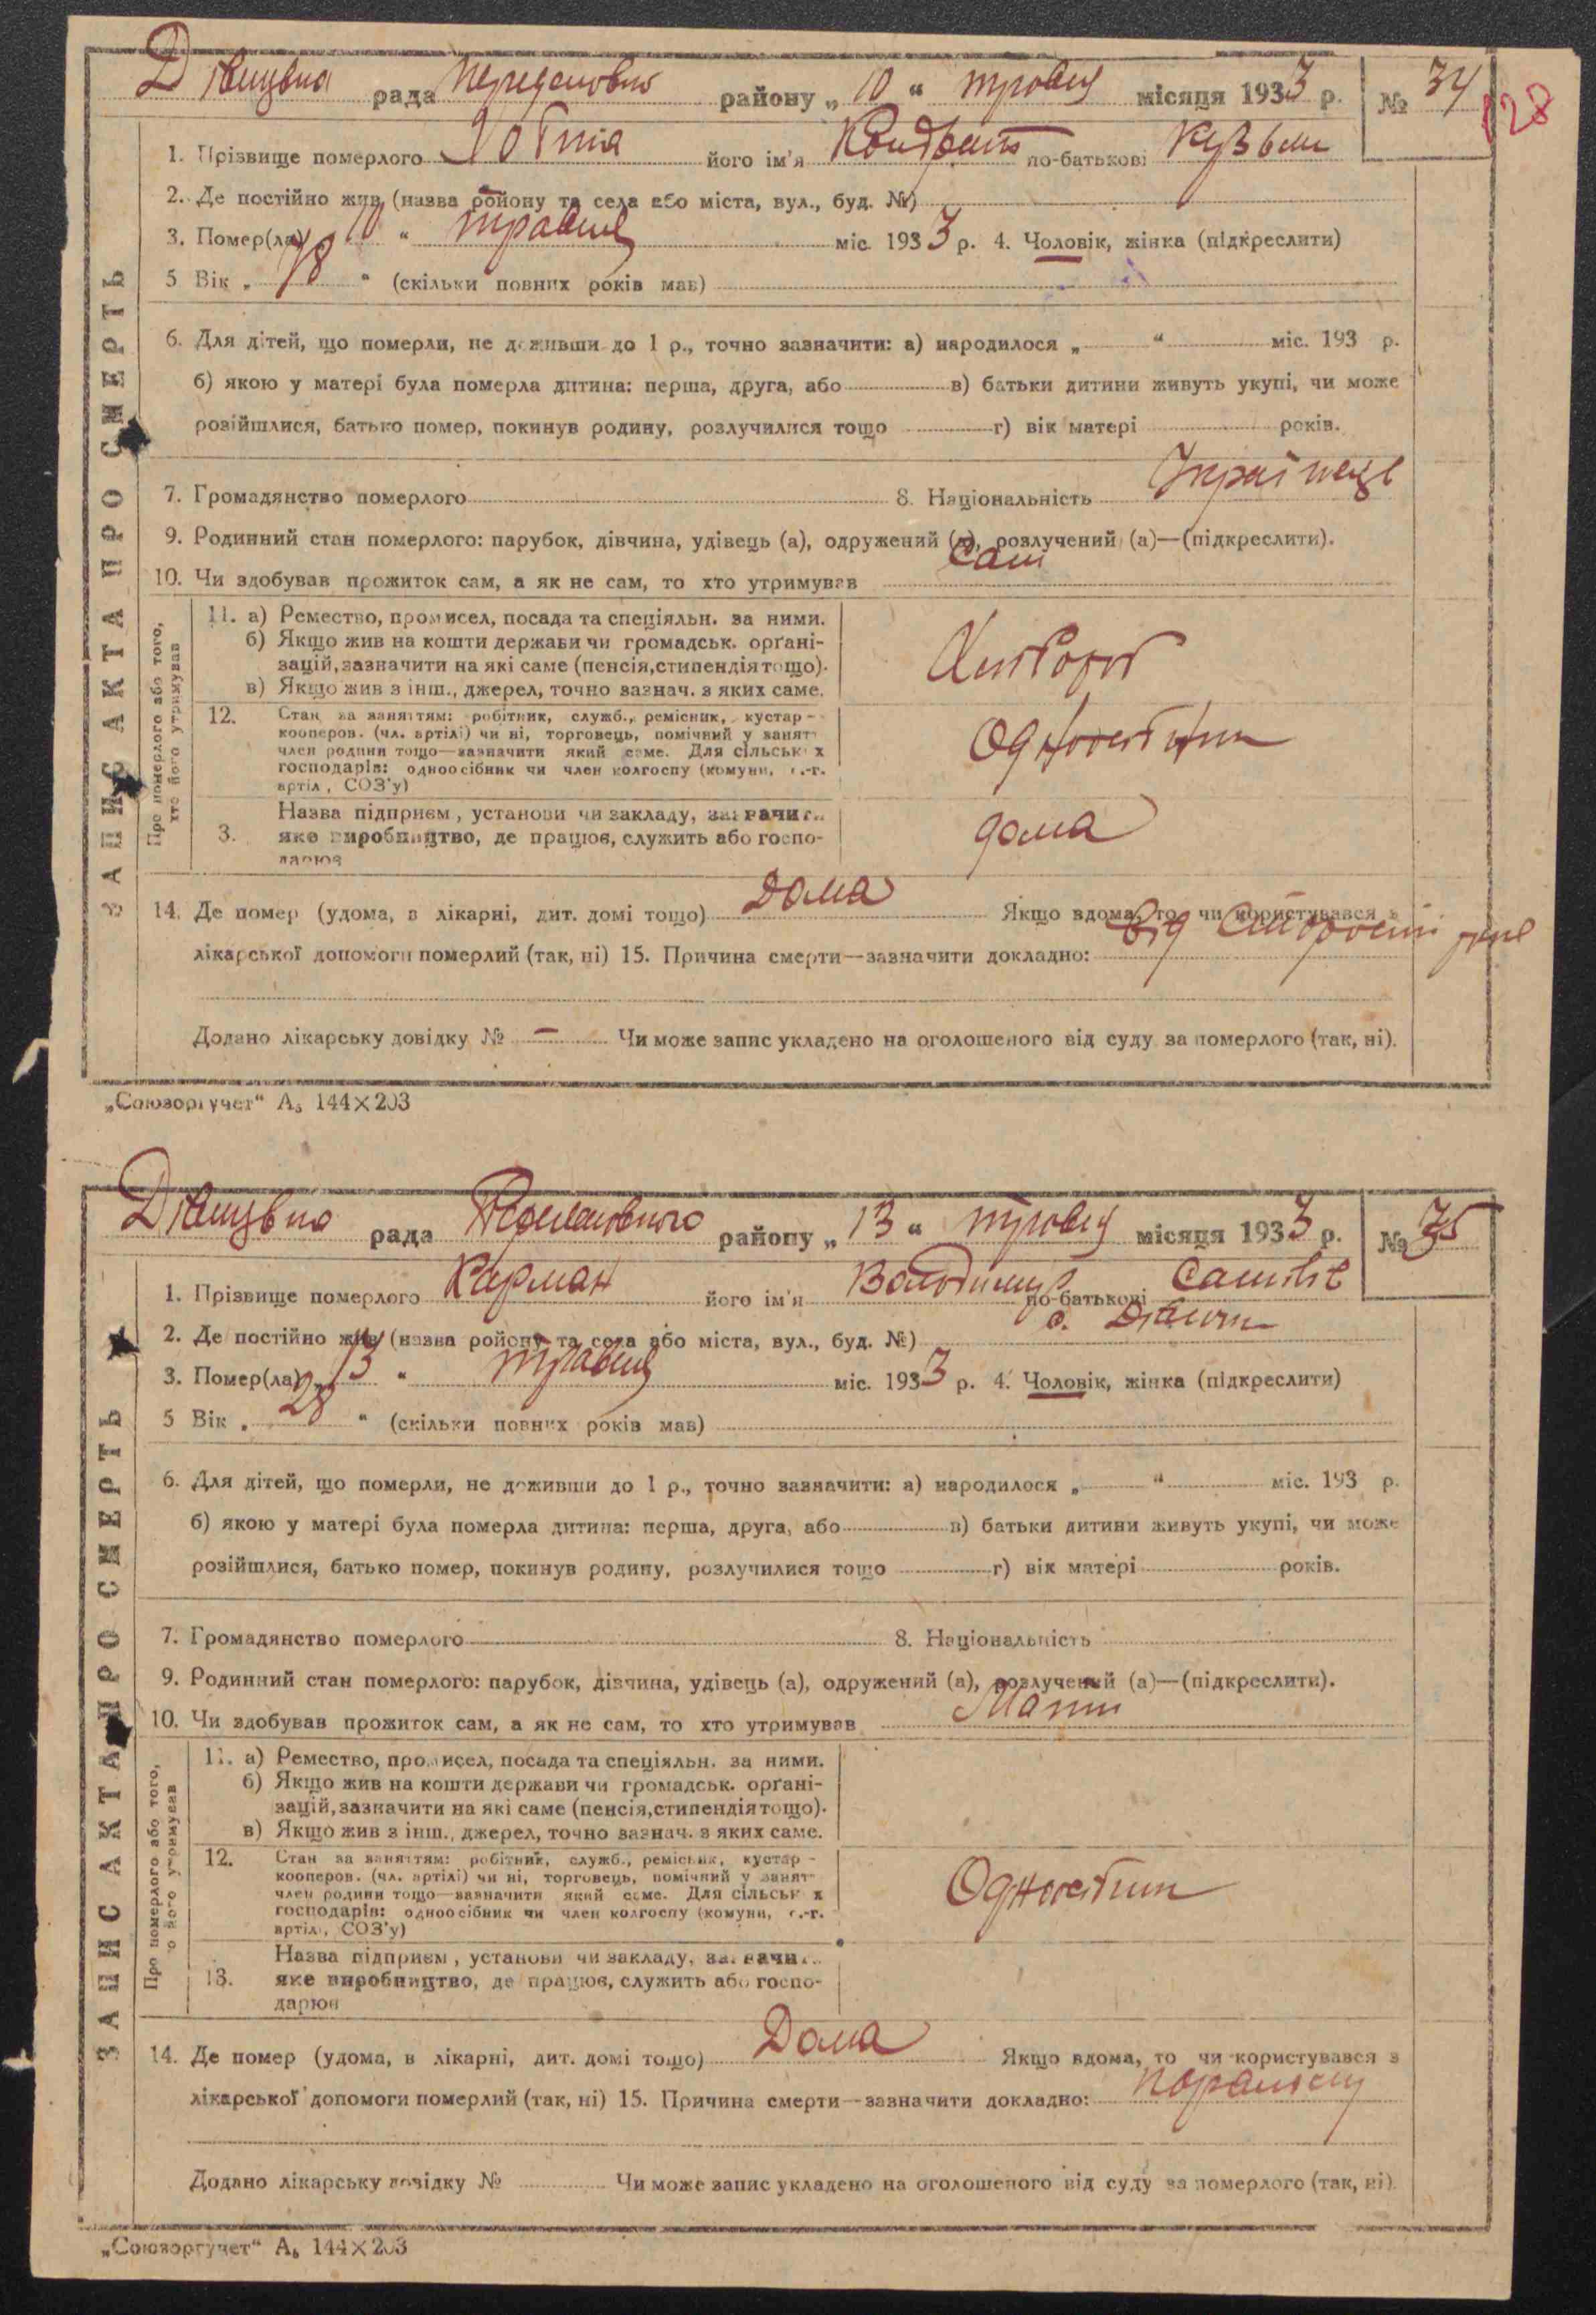 рада району „ 10 “ травня місяця 1933 р. № 34
128
1. Прізвище померлого його ім'я Кондрат по-батькові Кузьм
2. Де постійно жив (назва району та села або міста, вул., буд. №)
3. Помер(ла) „ 10 “ травня міс. 1933 р. 4. Чоловік, жінка (підкреслити)
5 Вік „ 78 “ (скільки повних років мав)
6. Для дітей, що померли, не доживши до 1 р., точно зазначити: а) народилося „ “ міс. 193 р.
б) якою у матері була померла дитина: перша, друга, або в) батьки дитини живуть укупі, чи може
розійшлися, батько помер, покинув родину, розлучилися тощо г) вік матері років.
7. Громадянство померлого 8. Національність Українець
9. Родинний стан померлого: парубок, дівчина, удівець (а), одружений (а), розлучений (а)—(підкреслити).
10. Чи здобував прожиток сам, а як не сам, то хто утримував Сам
ЗАПИС АКТА ПРО СМЕРТЬ
Про померлого або того, хто його утримував
11. а) Ремество, промисел, посада та спеціяльн. за ними. Хлібороб
б) Якщо жив на кошти держави чи громадськ. орґані-
зацій, зазначити на які саме (пенсія, стипендія тощо).
в) Якщо жив з інш., джерел, точно зазнач. з яких саме.
12. Стан за заняттям: робітник, служб., ремісник, кустар -
кооперов. (чл. артілі) чи ні, торговець, помічний у занят
член родини тощо—зазначити який саме. Для сільськ х
господарів: одноосібник чи член колгоспу (комуни, с.-г.
артіл , СОЗ'у)
Назва підприєм , установи чи закладу, зазначити
3. яке виробництво, де працює, служить або госпо-
дарює
дома
14. Де помер (удома, в лікарні, дит. домі тощо) Дома Якщо вдома, то чи користувався з
лікарської допомоги померлий (так, ні) 15. Причина смерти—зазначити докладно: від старости
Додано лікарську довідку № — Чи може запис укладено на оголошеного від суду за померлого (так, ні).
„Союзоргучет“ А₅ 144×203
рада району „ 13 “ травня місяця 1933 р. № 35
1. Прізвище померлого Карман його ім'я Володимир по-батькові
2. Де постійно жив (назва району та села або міста, вул., буд. №) с.
3. Помер(ла) „ 13 “ травня міс. 1933 р. 4. Чоловік, жінка (підкреслити)
5 Вік „ 28 “ (скільки повних років мав)
6. Для дітей, що померли, не доживши до 1 р., точно зазначити: а) народилося „ “ міс. 193 р.
б) якою у матері була померла дитина: перша, друга, або в) батьки дитини живуть укупі, чи може
розійшлися, батько помер, покинув родину, розлучилися тощо г) вік матері років.
7. Громадянство померлого 8. Національність
9. Родинний стан померлого: парубок, дівчина, удівець (а), одружений (а), розлучений (а)—(підкреслити).
10. Чи здобував прожиток сам, а як не сам, то хто утримував Мати
ЗАПИС АКТА ПРО СМЕРТЬ
Про померлого або того, о його утримував
11. а) Ремество, промисел, посада та спеціяльн. за ними.
б) Якщо жив на кошти держави чи громадськ. орґані-
зацій, зазначити на які саме (пенсія, стипендія тощо).
в) Якщо жив з інш., джерел, точно зазнач. з яких саме.
12. Стан за заняттям: робітник, служб., ремісник, кустар -
кооперов. (чл. артілі) чи ні, торговець, помічний у занят
член родини тощо—зазначити який саме. Для сільськ х
господарів: одноосібник чи член колгоспу (комуни, с.-г.
артіл , СОЗ'у)
Назва підприєм , установи чи закладу, зазначити
13. яке виробництво, де працює, служить або госпо-
дарює
14. Де помер (удома, в лікарні, дит. домі тощо) Дома Якщо вдома, то чи користувався з
лікарської допомоги померлий (так, ні) 15. Причина смерти—зазначити докладно:
Додано лікарську довідку № Чи може запис укладено на оголошеного від суду за померлого (так, ні).
„Союзоргучет“ А₅ 144×203